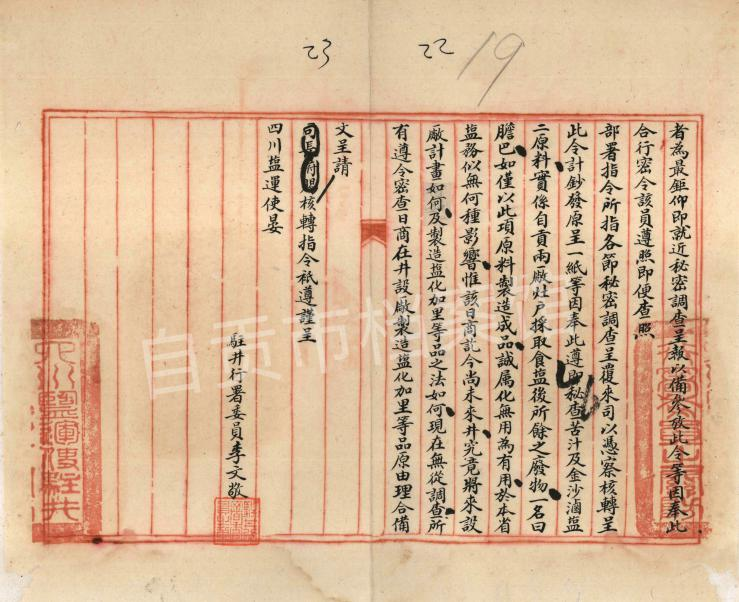 23
22
19
者為最鉅仰即就近秘密調查呈報以備參放此令等因奉此
合行密令該員遵照即便查照
部署指令所指各節秘密調查呈覆來司以憑察核轉呈
此令計鈔發原呈一紙等因奉此遵即秘查苦汁及金沙滷塩
二原料實係自貢兩廠灶户採取食塩後所餘之廢物一名曰
膽巴如僅以此項原料製造成品誠属化無用為有用於本省
塩務似無何種影響惟該日商訖今尚未來井究竟將來設
廠計畫如何及製造塩化加里等品之法如何現在無從調查所
有遵令密查日商在井設廠製造塩化加里等品原由理合備
文呈請
核轉指令祇遵謹呈
四川塩運使晏
駐井行署委員李文敬
自贡市档案馆